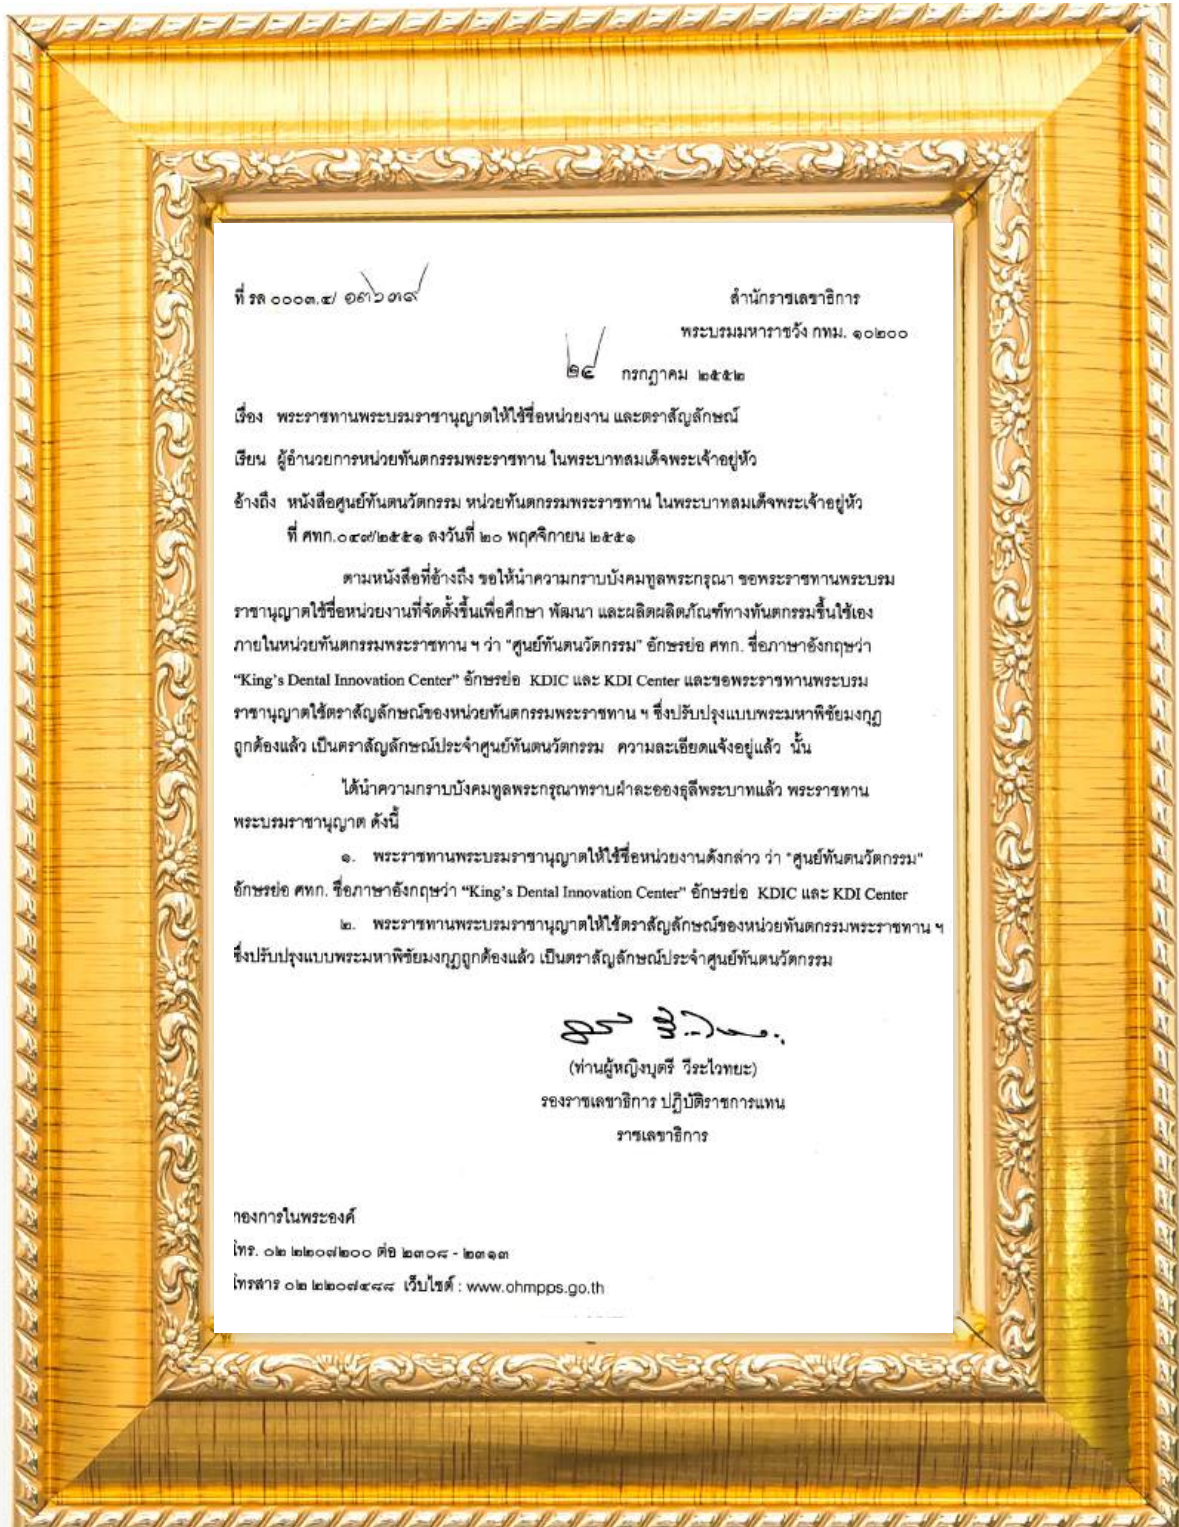 ที่ รล ๐๐๐๓.๔/ ๑๓๖๓๙
สำนักราชเลขาธิการ
พระบรมมหาราชวัง กทม. ๑๐๒๐๐
๒๔ กรกฎาคม ๒๕๕๒
เรื่อง พระราชทานพระบรมราชานุญาตให้ใช้ชื่อหน่วยงาน และตราสัญลักษณ์
เรียน ผู้อำนวยการหน่วยทันตกรรมพระราชทาน ในพระบาทสมเด็จพระเจ้าอยู่หัว
อ้างถึง หนังสือศูนย์ทันตนวัตกรรม หน่วยทันตกรรมพระราชทาน ในพระบาทสมเด็จพระเจ้าอยู่หัว
ที่ ศทก.๐๔๙/๒๕๕๑ ลงวันที่ ๒๐ พฤศจิกายน ๒๕๕๑
ตามหนังสือที่อ้างถึง ขอให้นำความกราบบังคมทูลพระกรุณา ขอพระราชทานพระบรม
ราชานุญาตใช้ชื่อหน่วยงานที่จัดตั้งขึ้นเพื่อศึกษา พัฒนา และผลิตผลิตภัณฑ์ทางทันตกรรมขึ้นใช้เอง
ภายในหน่วยทันตกรรมพระราชทาน ฯ ว่า "ศูนย์ทันตนวัตกรรม" อักษรย่อ ศทก. ชื่อภาษาอังกฤษว่า
“King's Dental Innovation Center” อักษรย่อ KDIC และ KDI Center และขอพระราชทานพระบรม
ราชานุญาตใช้ตราสัญลักษณ์ของหน่วยทันตกรรมพระราชทาน ฯ ซึ่งปรับปรุงแบบพระมหาพิชัยมงกุฎ
ถูกต้องแล้ว เป็นตราสัญลักษณ์ประจำศูนย์ทันตนวัตกรรม ความละเอียดแจ้งอยู่แล้ว นั้น
ได้นำความกราบบังคมทูลพระกรุณาทราบฝ่าละอองธุลีพระบาทแล้ว พระราชทาน
พระบรมราชานุญาต ดังนี้
๑. พระราชทานพระบรมราชานุญาตให้ใช้ชื่อหน่วยงานดังกล่าว ว่า "ศูนย์ทันตนวัตกรรม"
อักษรย่อ ศทก. ชื่อภาษาอังกฤษว่า “King's Dental Innovation Center” อักษรย่อ KDIC และ KDI Center
๒. พระราชทานพระบรมราชานุญาตให้ใช้ตราสัญลักษณ์ของหน่วยทันตกรรมพระราชทาน ฯ
ซึ่งปรับปรุงแบบพระมหาพิชัยมงกุฎถูกต้องแล้ว เป็นตราสัญลักษณ์ประจำศูนย์ทันตนวัตกรรม
(ท่านผู้หญิงบุตรี วีระไวทยะ)
รองราชเลขาธิการ ปฏิบัติราชการแทน
ราชเลขาธิการ
กองการในพระองค์
โทร. ๐๒ ๒๒๐๗๒๐๐ ต่อ ๒๓๐๘ - ๒๓๑๓
โทรสาร ๐๒ ๒๒๐๗๔๘๘ เว็บไซต์ : www.ohmpps.go.th